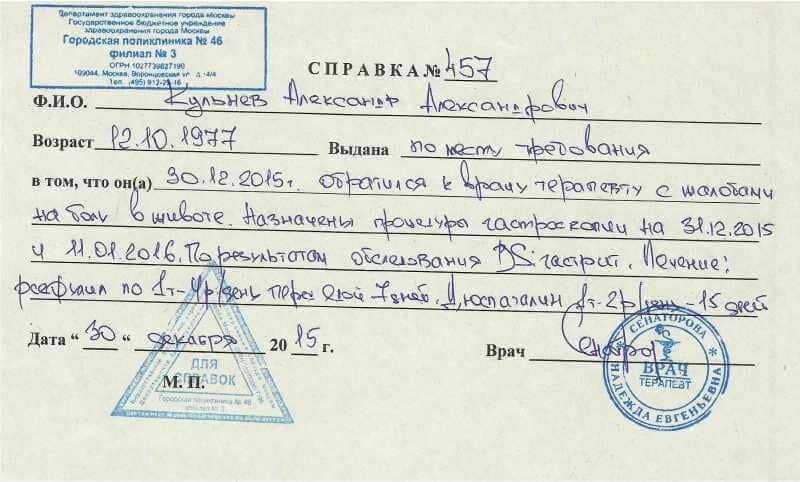 Департамент здравоохранения города Москвы
Государственное бюджетное учреждение
здравоохранения города Москвы
Городская поликлиника № 46
филиал № 3
ОГРН 1027739827190
109044, Москва, Воронцовская ул д. 14/4
Тел. (495) 912-
СПРАВКА № 457
Ф.И.О. Кульнев Александр Александрович
Возраст 12.10.1977 Выдана по месту требования
в том, что он(а) 30.12.2015г. обратился к врачу терапевту с жалобами
на боли в животе. Назначены процедуры гастроскопии на 31.12.2015
и 11.01.2016. По результатам обследования DS: гастрит. Лечение:
по 1т-4р/день перед едой 7 дней. 1т-2р/день - 15 дней
Дата “ 30 “ декабря 20 15 г. Врач
ДЛЯ
СПРАВОК
М. П.
Городская поликлиника № 46
филиал № 3
СЕНАТОРОВА
ВРАЧ
ТЕРАПЕВТ
НАДЕЖДА ЕВГЕНЬЕВНА